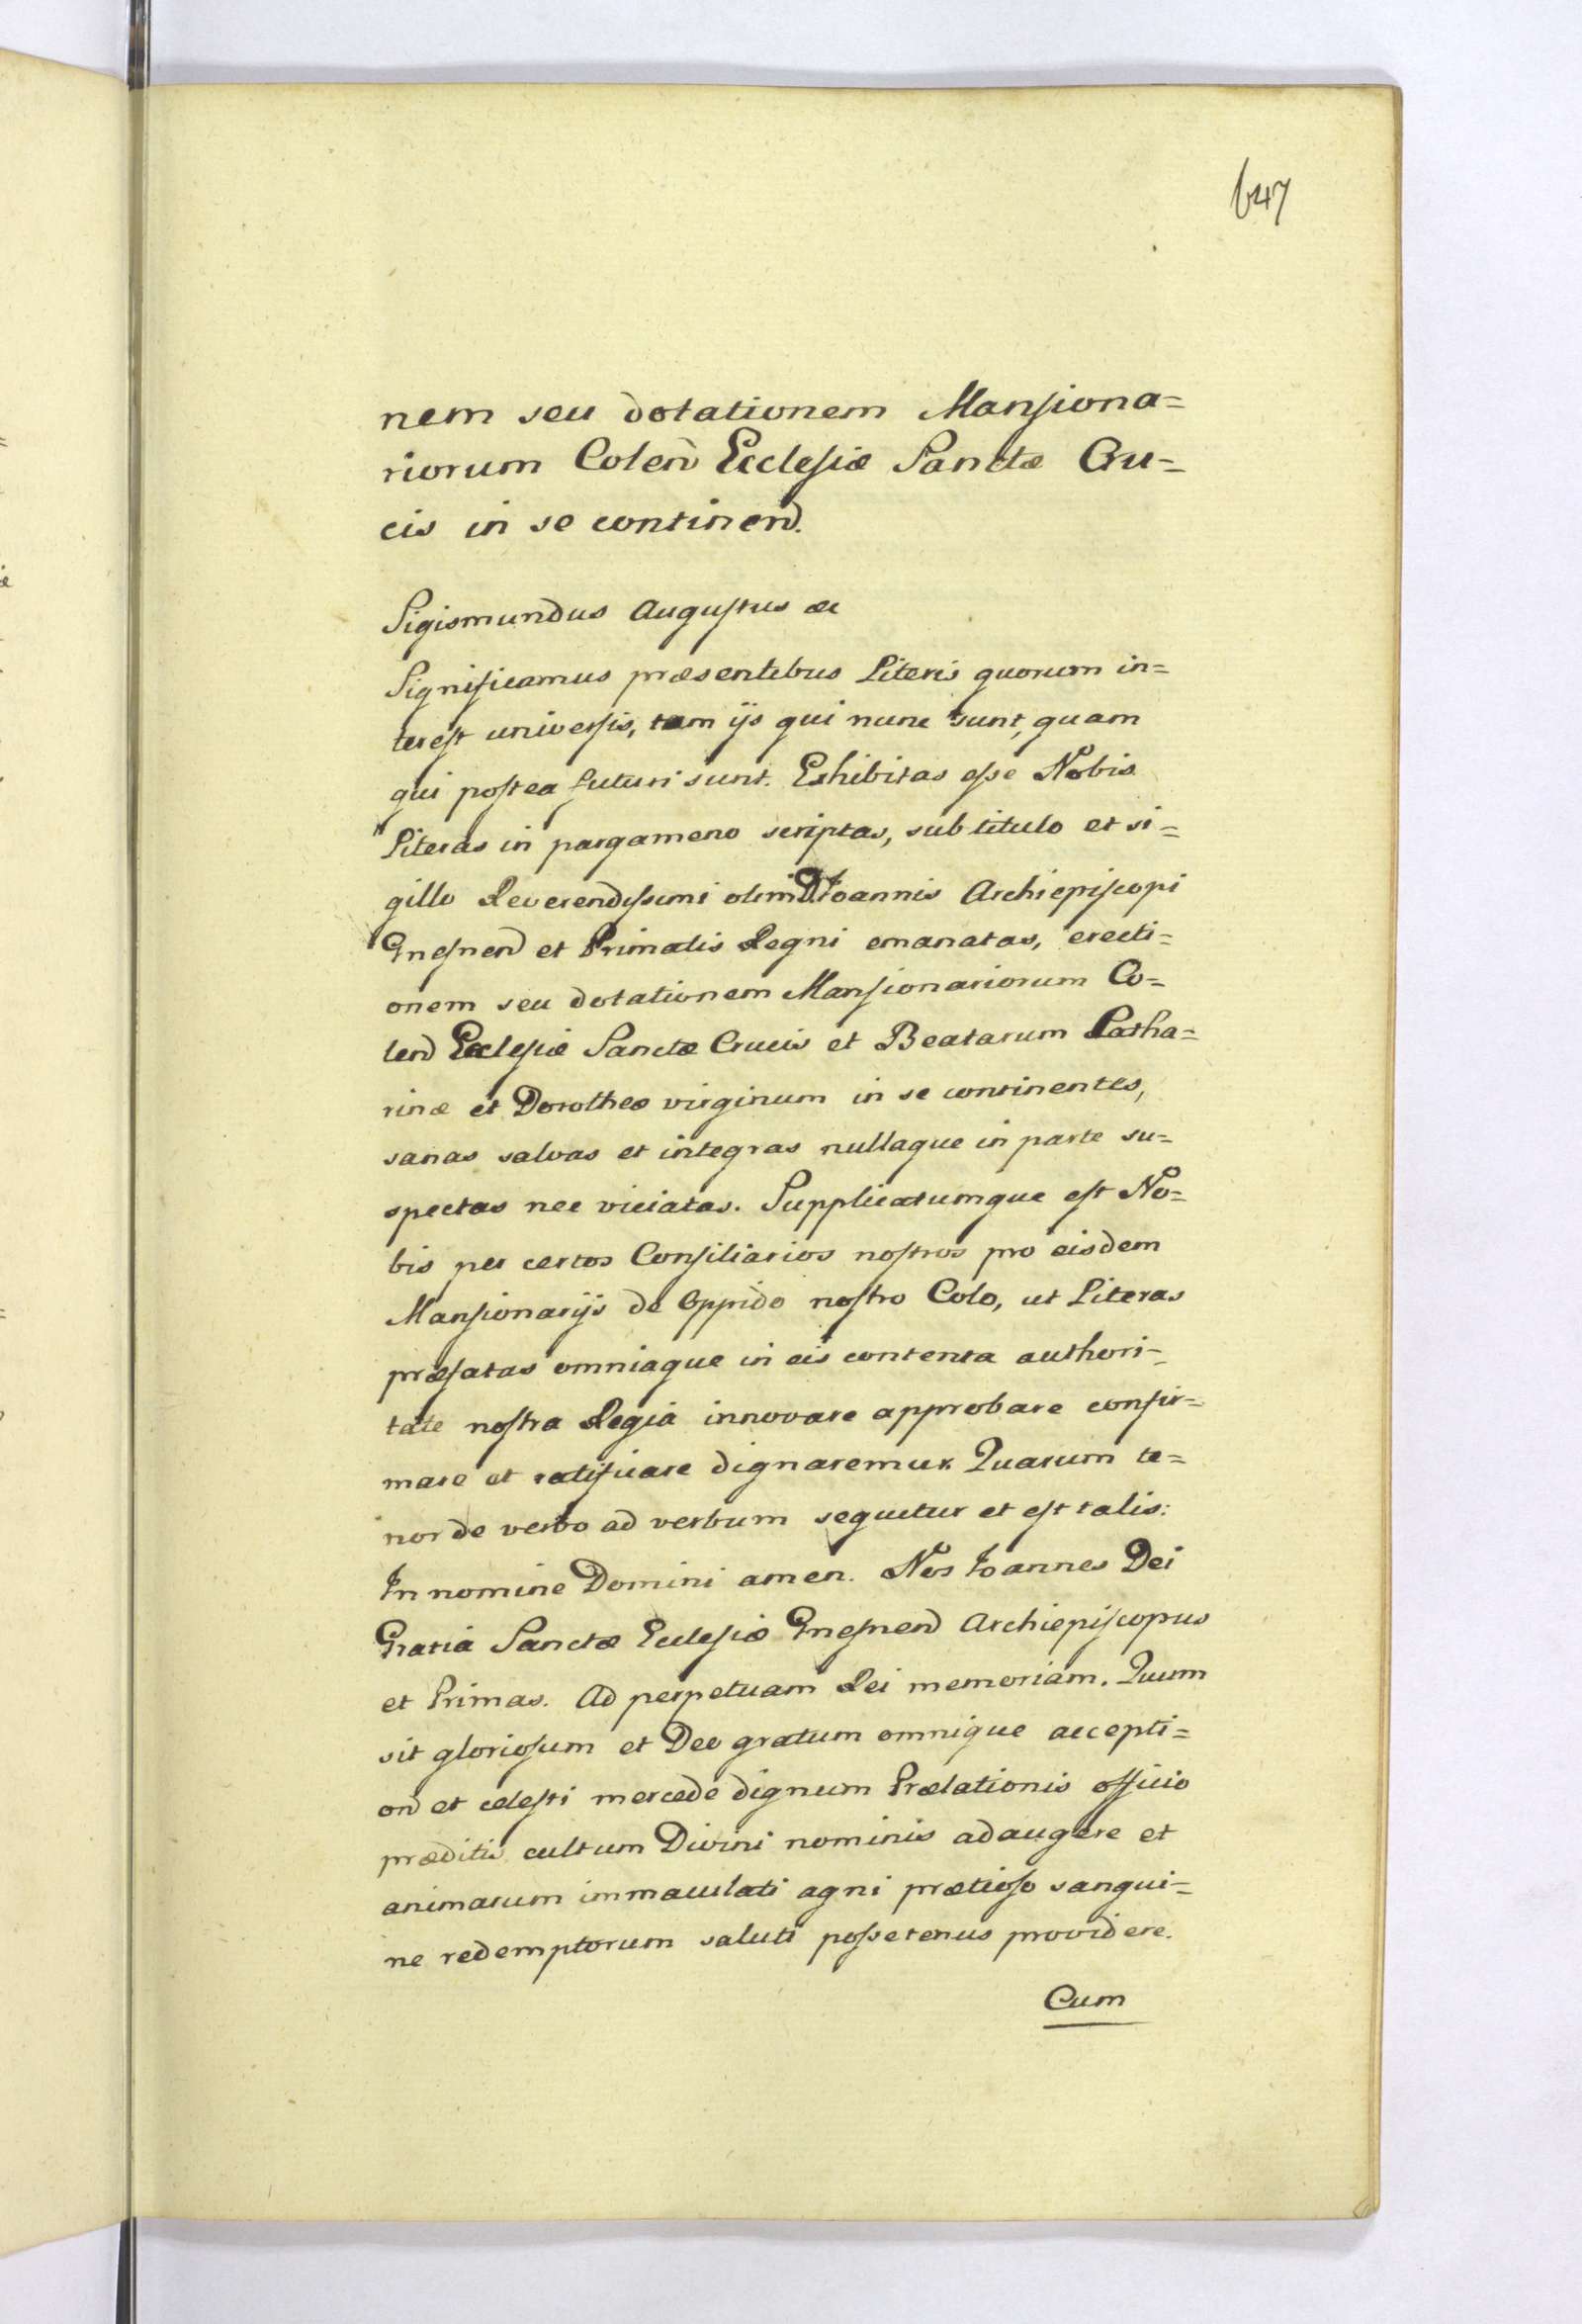 647
nem seu dotationem Mansiona=
riorum Colen̄ Ecclesiæ Sanctæ Cru=
cis in se continen̄.
Sigismundus Augustus &c
Significamus præsentibus Literis quorum in=
terest universis, tam ijs qui nunc sunt, quam
qui postea futuri sunt. Exhibitas esse Nobis
Literas in pargameno scriptas, sub titulo et si=
gillo Reverendissimi olim D. Joannis Archiepiscopi
Gnesnen̄ et Primatis Regni emanatas, erecti=
onem seu dotationem Mansionariorum Co=
len̄ Ecclesiæ Sanctæ Crucis et Beatarum Catha=
rinæ et Dorotheæ virginum in se continentes,
sanas salvas et integras nullaque in parte su=
spectas nec viciatas. Supplicatumque est No=
bis per certos Consiliarios nostros pro eisdem
Mansionarijs de Oppido nostro Colo, ut Literas
præfatas omniaque in eis contenta authori=
tate nostra Regia innovare approbare confir=
mare et ratificare dignaremur. Quarum te=
nor de verbo ad verbum sequitur et est talis:
In nomine Domini amen. Nos Joannes Dei
Gratia Sanctæ Ecclesiæ Gnesnen̄ Archiepiscopus
et Primas. Ad perpetuam Rei memoriam. Quum
sit gloriosum et Deo gratum omnique accepti=
on̄ et celesti mercede dignum Prælationis officio
præditis cultum Divini nominis adaugere et
animarum immaculati agni prætioso sangui=
ne redemptorum saluti possetenus providere.
Cum